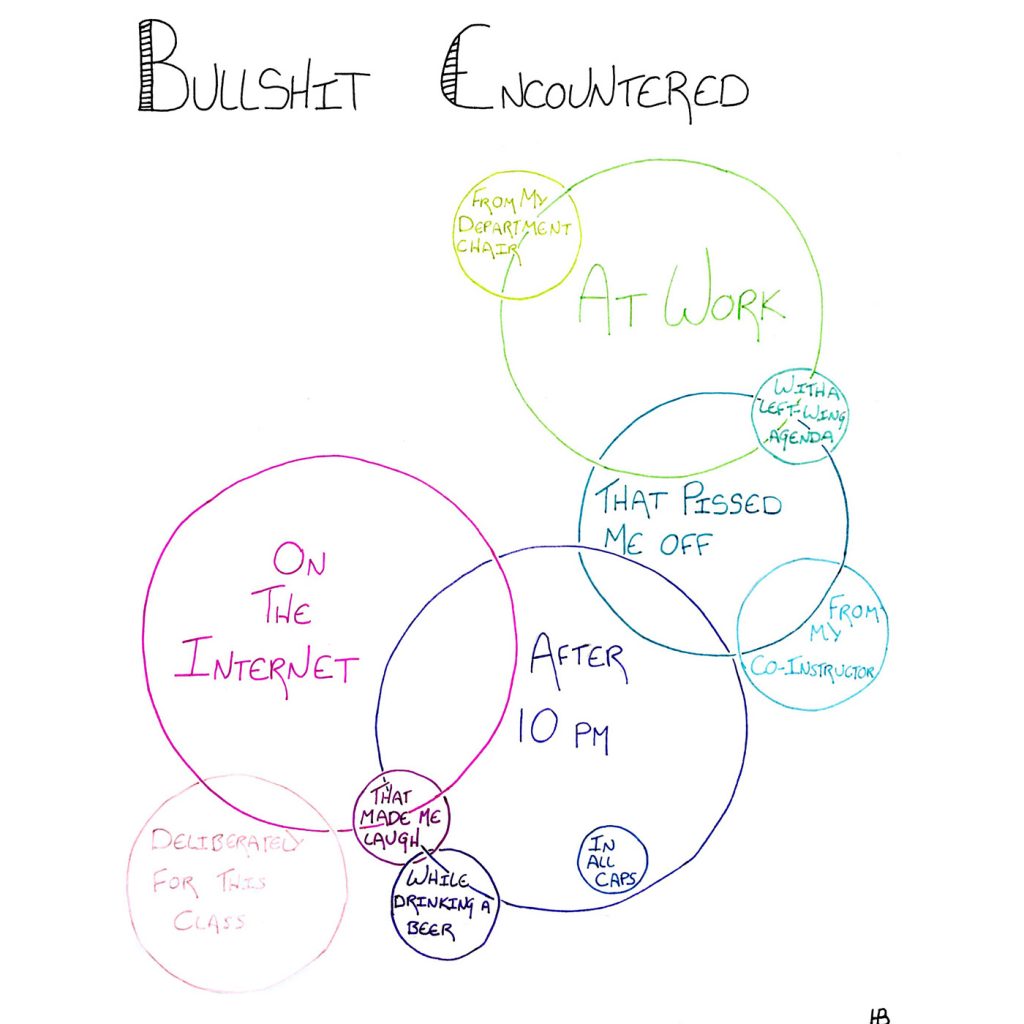 BULLSHIT ENCOUNTERED
FROM MY
DEPARTMENT
CHAIR
AT WORK
WITH A
LEFT-WING
AGENDA
THAT PISSED
ME OFF
ON
THE
INTERNET
FROM
MY
CO-INSTRUCTOR
AFTER
10 PM
THAT
MADE ME
LAUGH
IN
ALL
CAPS
DELIBERATELY
FOR THIS
CLASS
WHILE
DRINKING A
BEER
HB